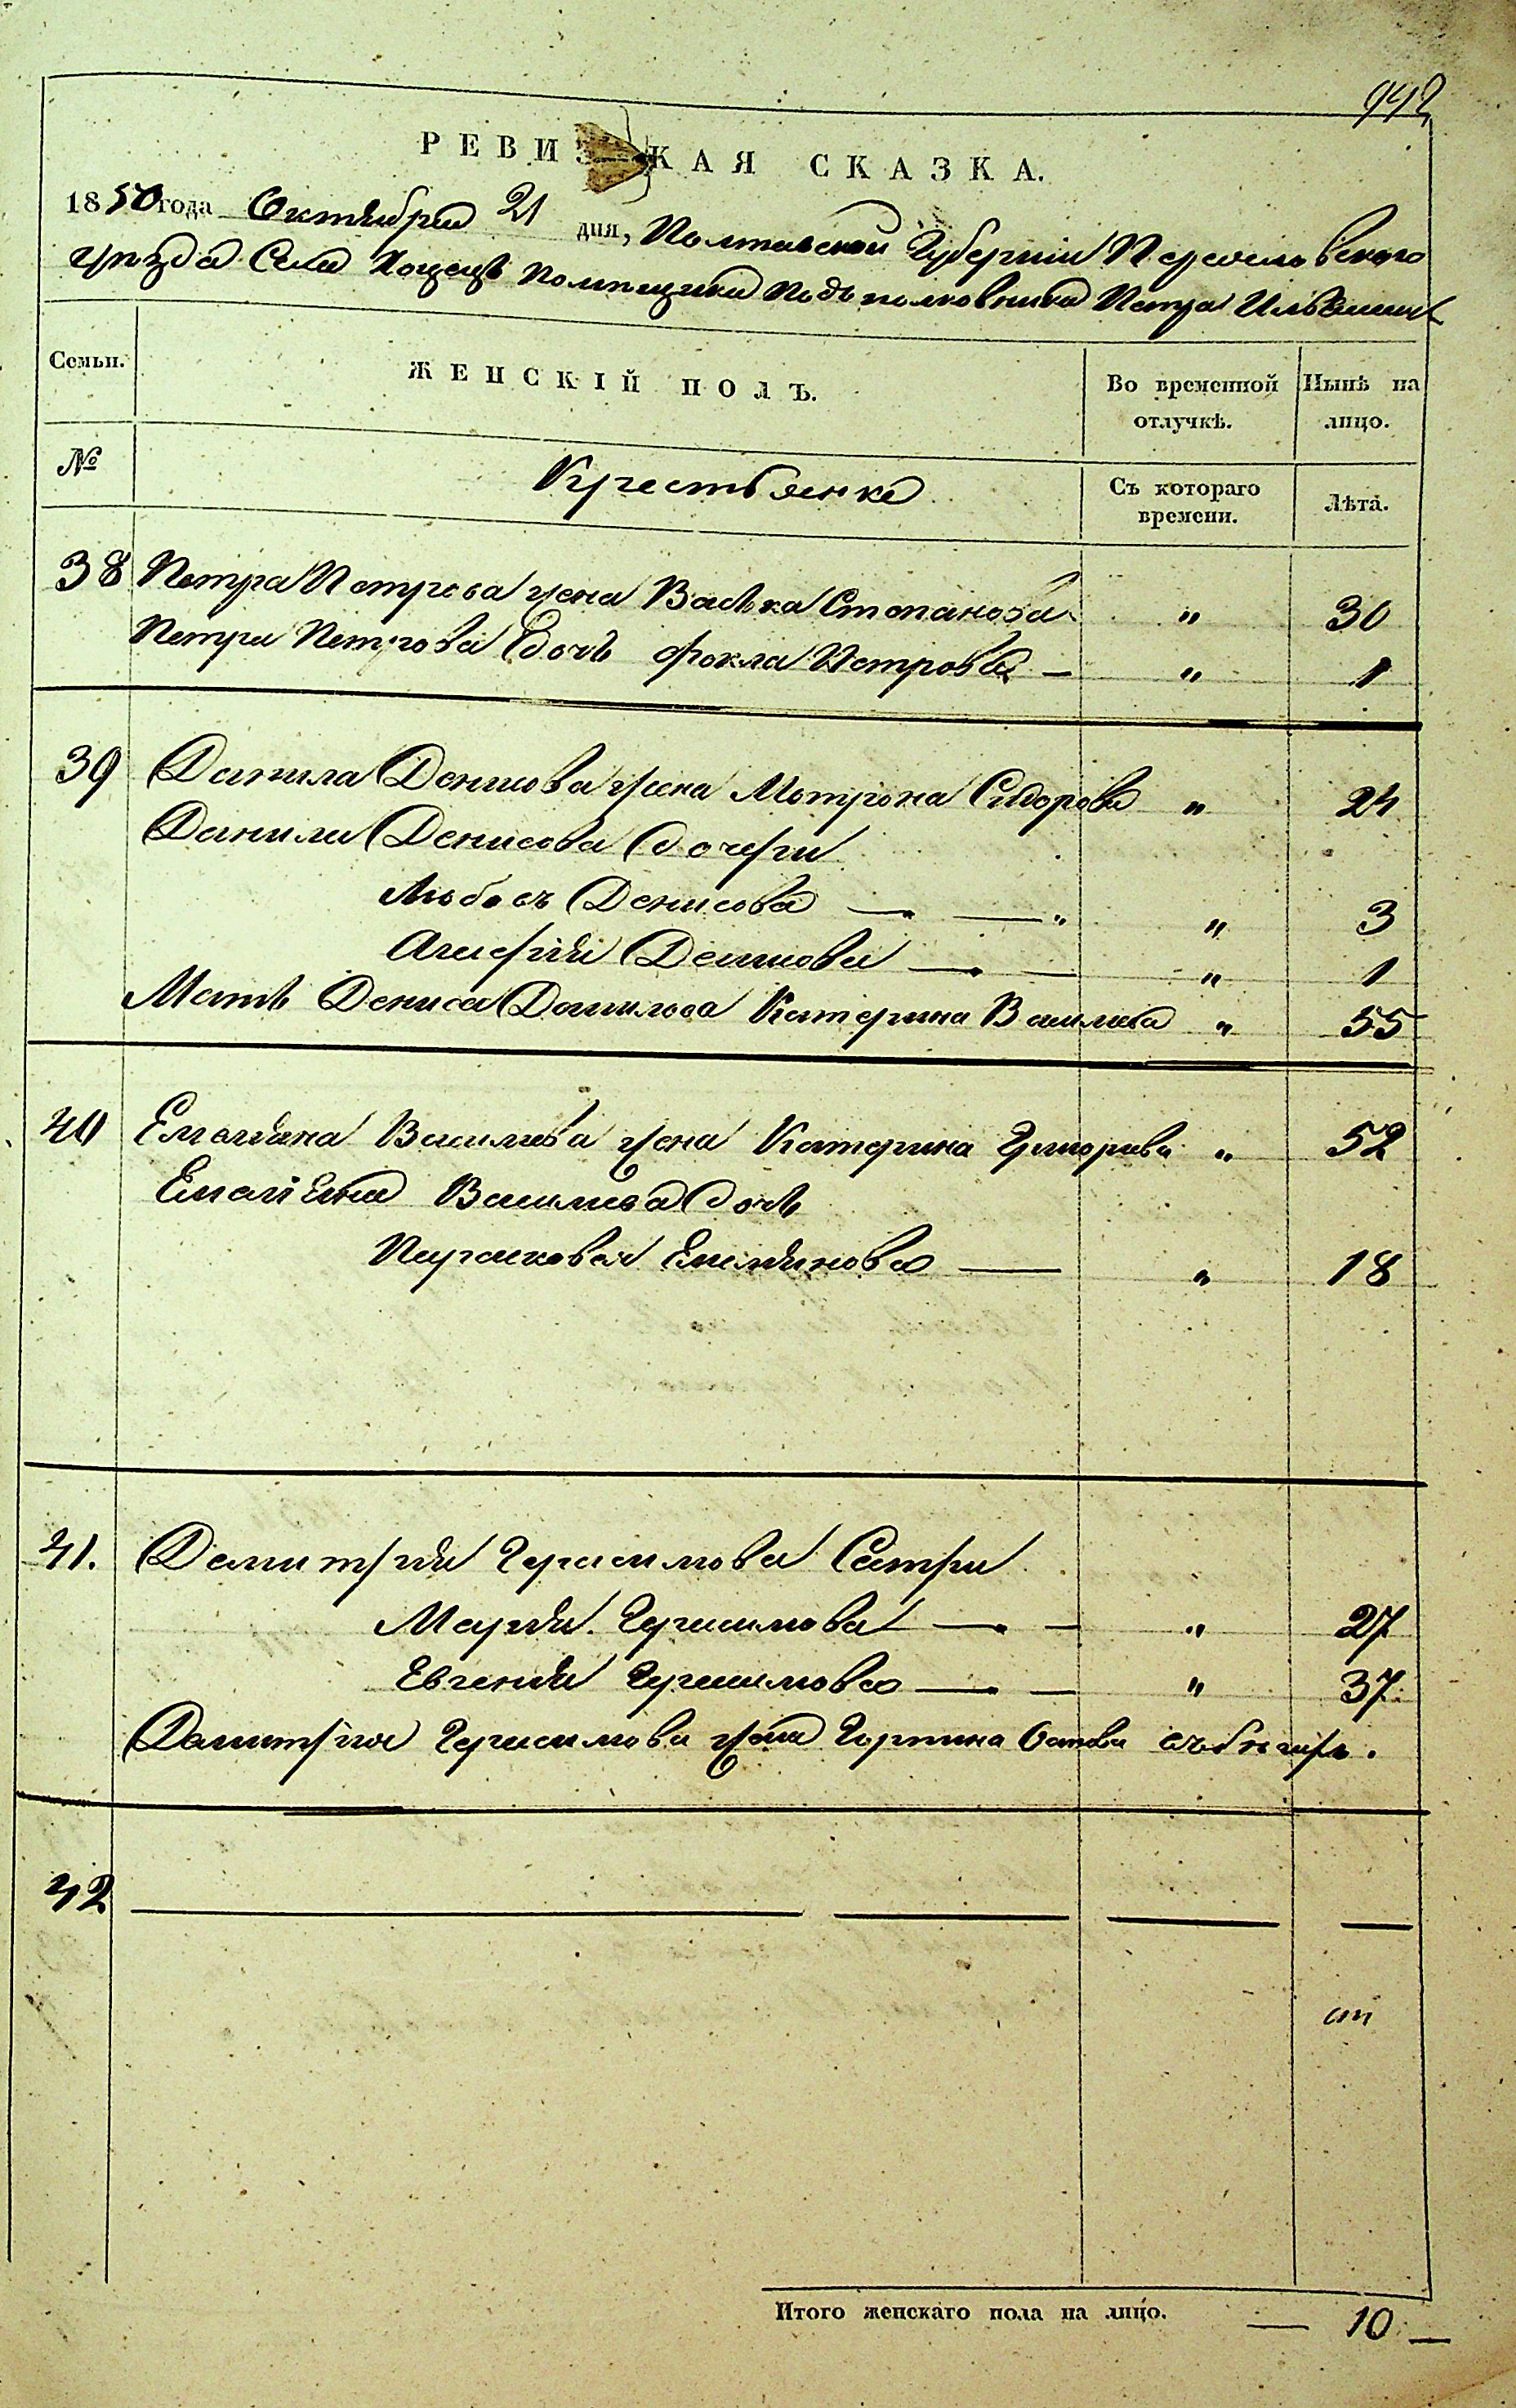 992
РЕВИЗСКАЯ СКАЗКА.
1850 года Октября 21 дня, Полтавской Губернии Переяславского
уѣзда Села Хоцекъ Помѣщика Подполковника Петра
Семьи.
ЖЕНСКІЙ ПОЛЪ.
Во временной отлучкѣ.
Нынѣ на лицо.
№
Крестьянке
Съ котораго времени.
Лѣта.
38 Петра Петрова жена Васька Степанова " 30
Петра Петрова дочь Фокла Петрова — " 1
39 Данила Денисова жена Мотрона Сидорова " 24
Данила Денисова дочери
Любовь Денисова — — " " 3
Денисова — — " 1
Мать Дениса Данилова Катерина Василева " 55
40 Емельяна Василева жена Катерина " 52
Емельяна Василева дочь
Парасковея Емельянова — " 18
41. Демитрия Герасимова Сестри
Мария Герасимова — — " 27
Евгения Герасимова — — " 37
Демитрия Герасимова жена
42 — — — —
Итого женскаго пола на лицо. — 10 —